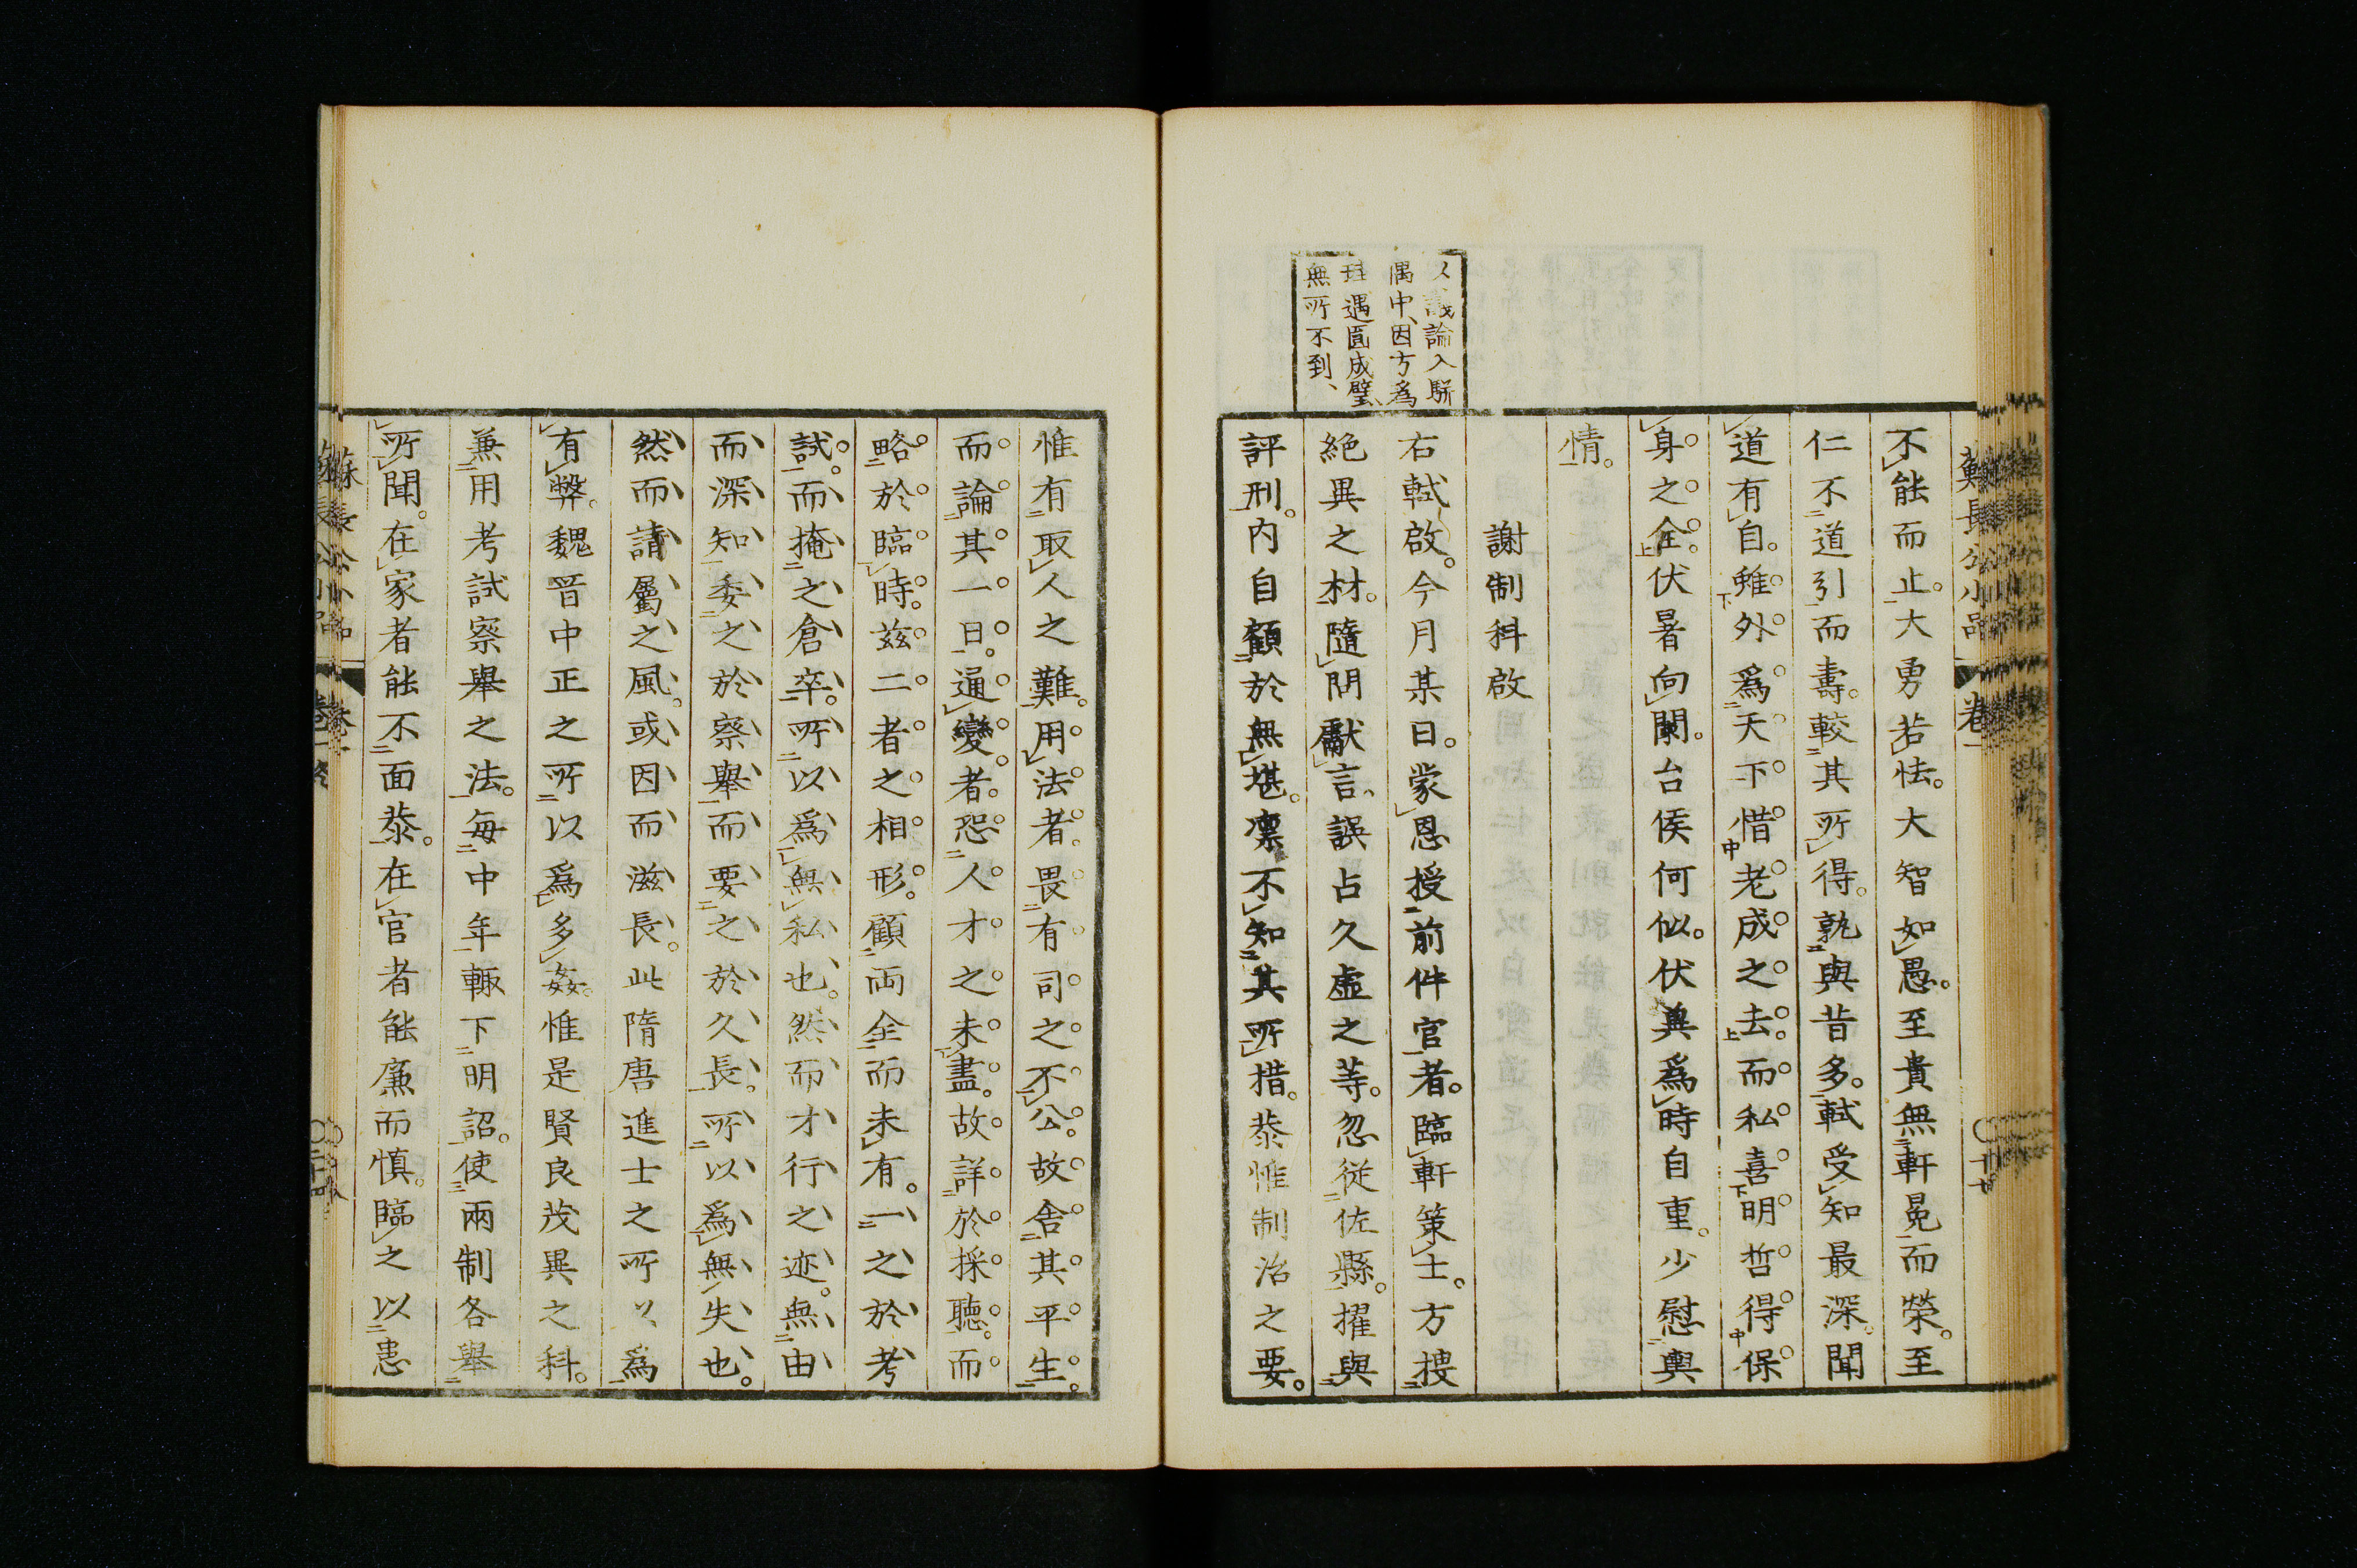 不能而止。大勇若怯。大智如愚。至貴無軒冕而榮。至
仁不道引而壽。較其所得。孰與昔多。軾受知最深。聞
道有自。雖外爲天下惜老成之去。而私喜明哲得保
身之全。伏暑向闌。台候何似。伏冀爲時自重。少慰輿
情。
謝制科啟
右軾啟。今月某日。蒙恩授前件官者。臨軒策士。方搜
絕異之材。隨問獻言、誤占久虛之等。忽從佐縣。擢與
評刑。內自顧於無堪。凛不知其所措。恭惟制治之要。
以議論入駢
偶中、因方爲
珪遇圎成璧、
無所不到、
蘇長公小品
卷一
惟有取人之難。用法者。畏有司之不公。故舍其平生。
而論其一日。通變者。恐人才之未盡。故詳於採聽。而
略於臨時。茲二者之相形。顧両全而未有。一之於考
試。而掩之倉卒。所以爲無私也。然而才行之迹。無由
而深知。委之於察舉。而要之於久長。所以爲無失也。
然而請屬之風。或因而滋長。此隋唐進士之所以爲
有弊。魏晉中正之所以爲多姦。惟是賢良茂異之科。
兼用考試察舉之法。每中年輙下明詔。使兩制各舉
所聞。在家者能不面恭。在官者能廉而慎。臨之以患
蘇長公小品